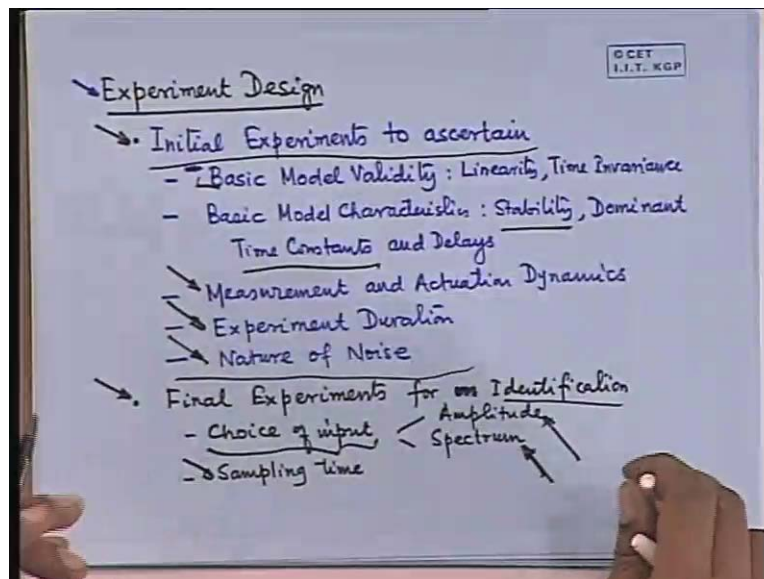 © CET
I.I.T. KGP
Experiment Design
• Initial Experiments to ascertain
- Basic Model Validity : Linearity, Time Invariance
- Basic Model Characteristics : Stability, Dominant
Time Constants and Delays
- Measurement and Actuation Dynamics
- Experiment Duration
- Nature of Noise
• Final Experiments for Identification
- Choice of input < Amplitude
Spectrum
- Sampling time